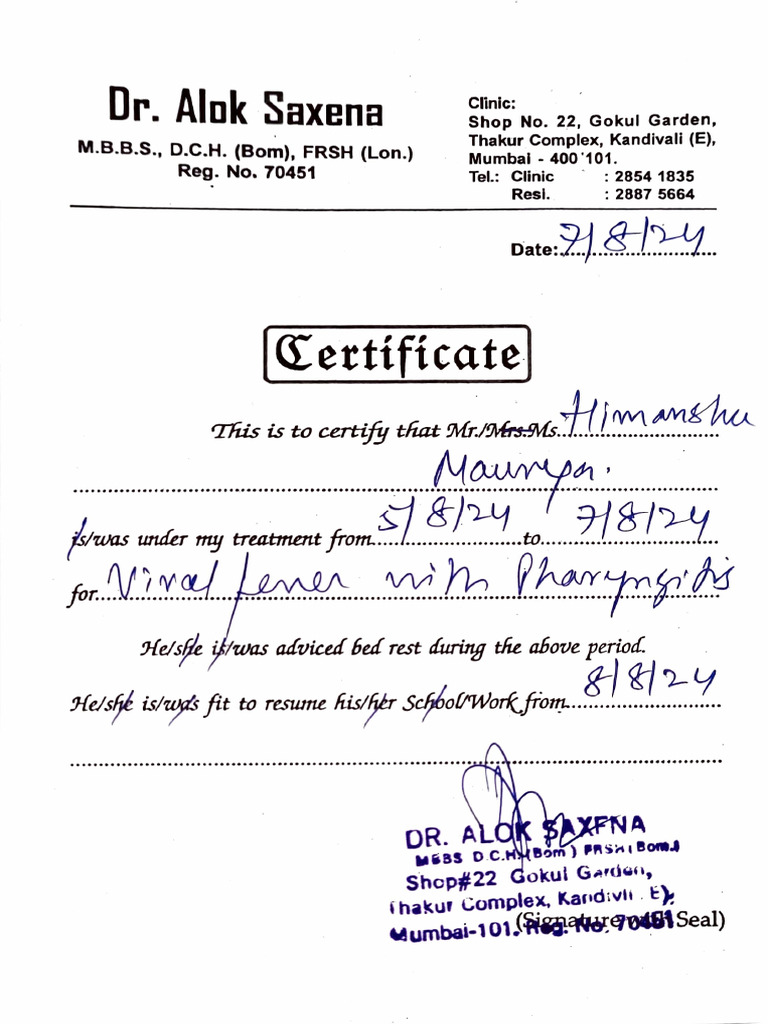 Dr. Alok Saxena
M.B.B.S., D.C.H. (Bom), FRSH (Lon.)
Reg. No. 70451
Clinic:
Shop No. 22, Gokul Garden,
Thakur Complex, Kandivali (E),
Mumbai - 400 101.
Tel.: Clinic : 2854 1835
Resi. : 2887 5664
Date: 7/8/24
Certificate
This is to certify that Mr./Mrs.Ms. Himanshu
Maurya.
is/was under my treatment from 5/8/24 to 7/8/24
for Viral fever with Pharyngitis
He/she is/was adviced bed rest during the above period.
He/she is/was fit to resume his/her School/Work from 8/8/24
DR. ALOK SAXENA
MBBS D.C.H.(Bom) FRSH(Bom.)
Shop#22 Gokul Garden,
Thakur Complex, Kandivli E),
(Signature with Seal)
Mumbai-101. Reg. No. 70451